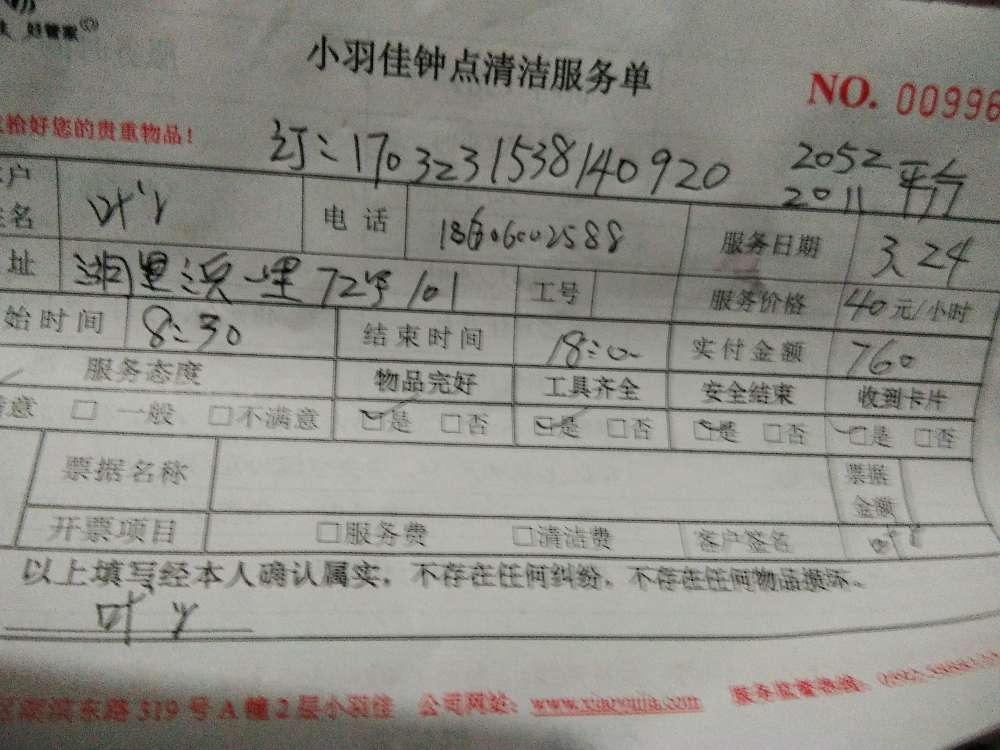 好管家
小羽佳钟点清洁服务单
NO. 00996
拾好您的贵重物品!
订:1703231538140920 2052
2011 平台
户 叶 电话 服务日期 3.24
名
址 湖里 72号101 工号 服务价格 40元/小时
始时间 8:30 结束时间 18:00 实付金额 760
服务态度 物品完好 工具齐全 安全结束 收到卡片
意 □ 一般 □不满意 □是 □否 □是 □否 □是 □否 □是 □否
票据名称 票据
金额
开票项目 □服务费 □清洁费 客户签名 叶
以上填写经本人确认属实,不存在任何纠纷,不存在任何物品损坏。
叶
东路319号A幢2层小羽佳 公司网站:www.xiaoyujia.com 服务监督热线: